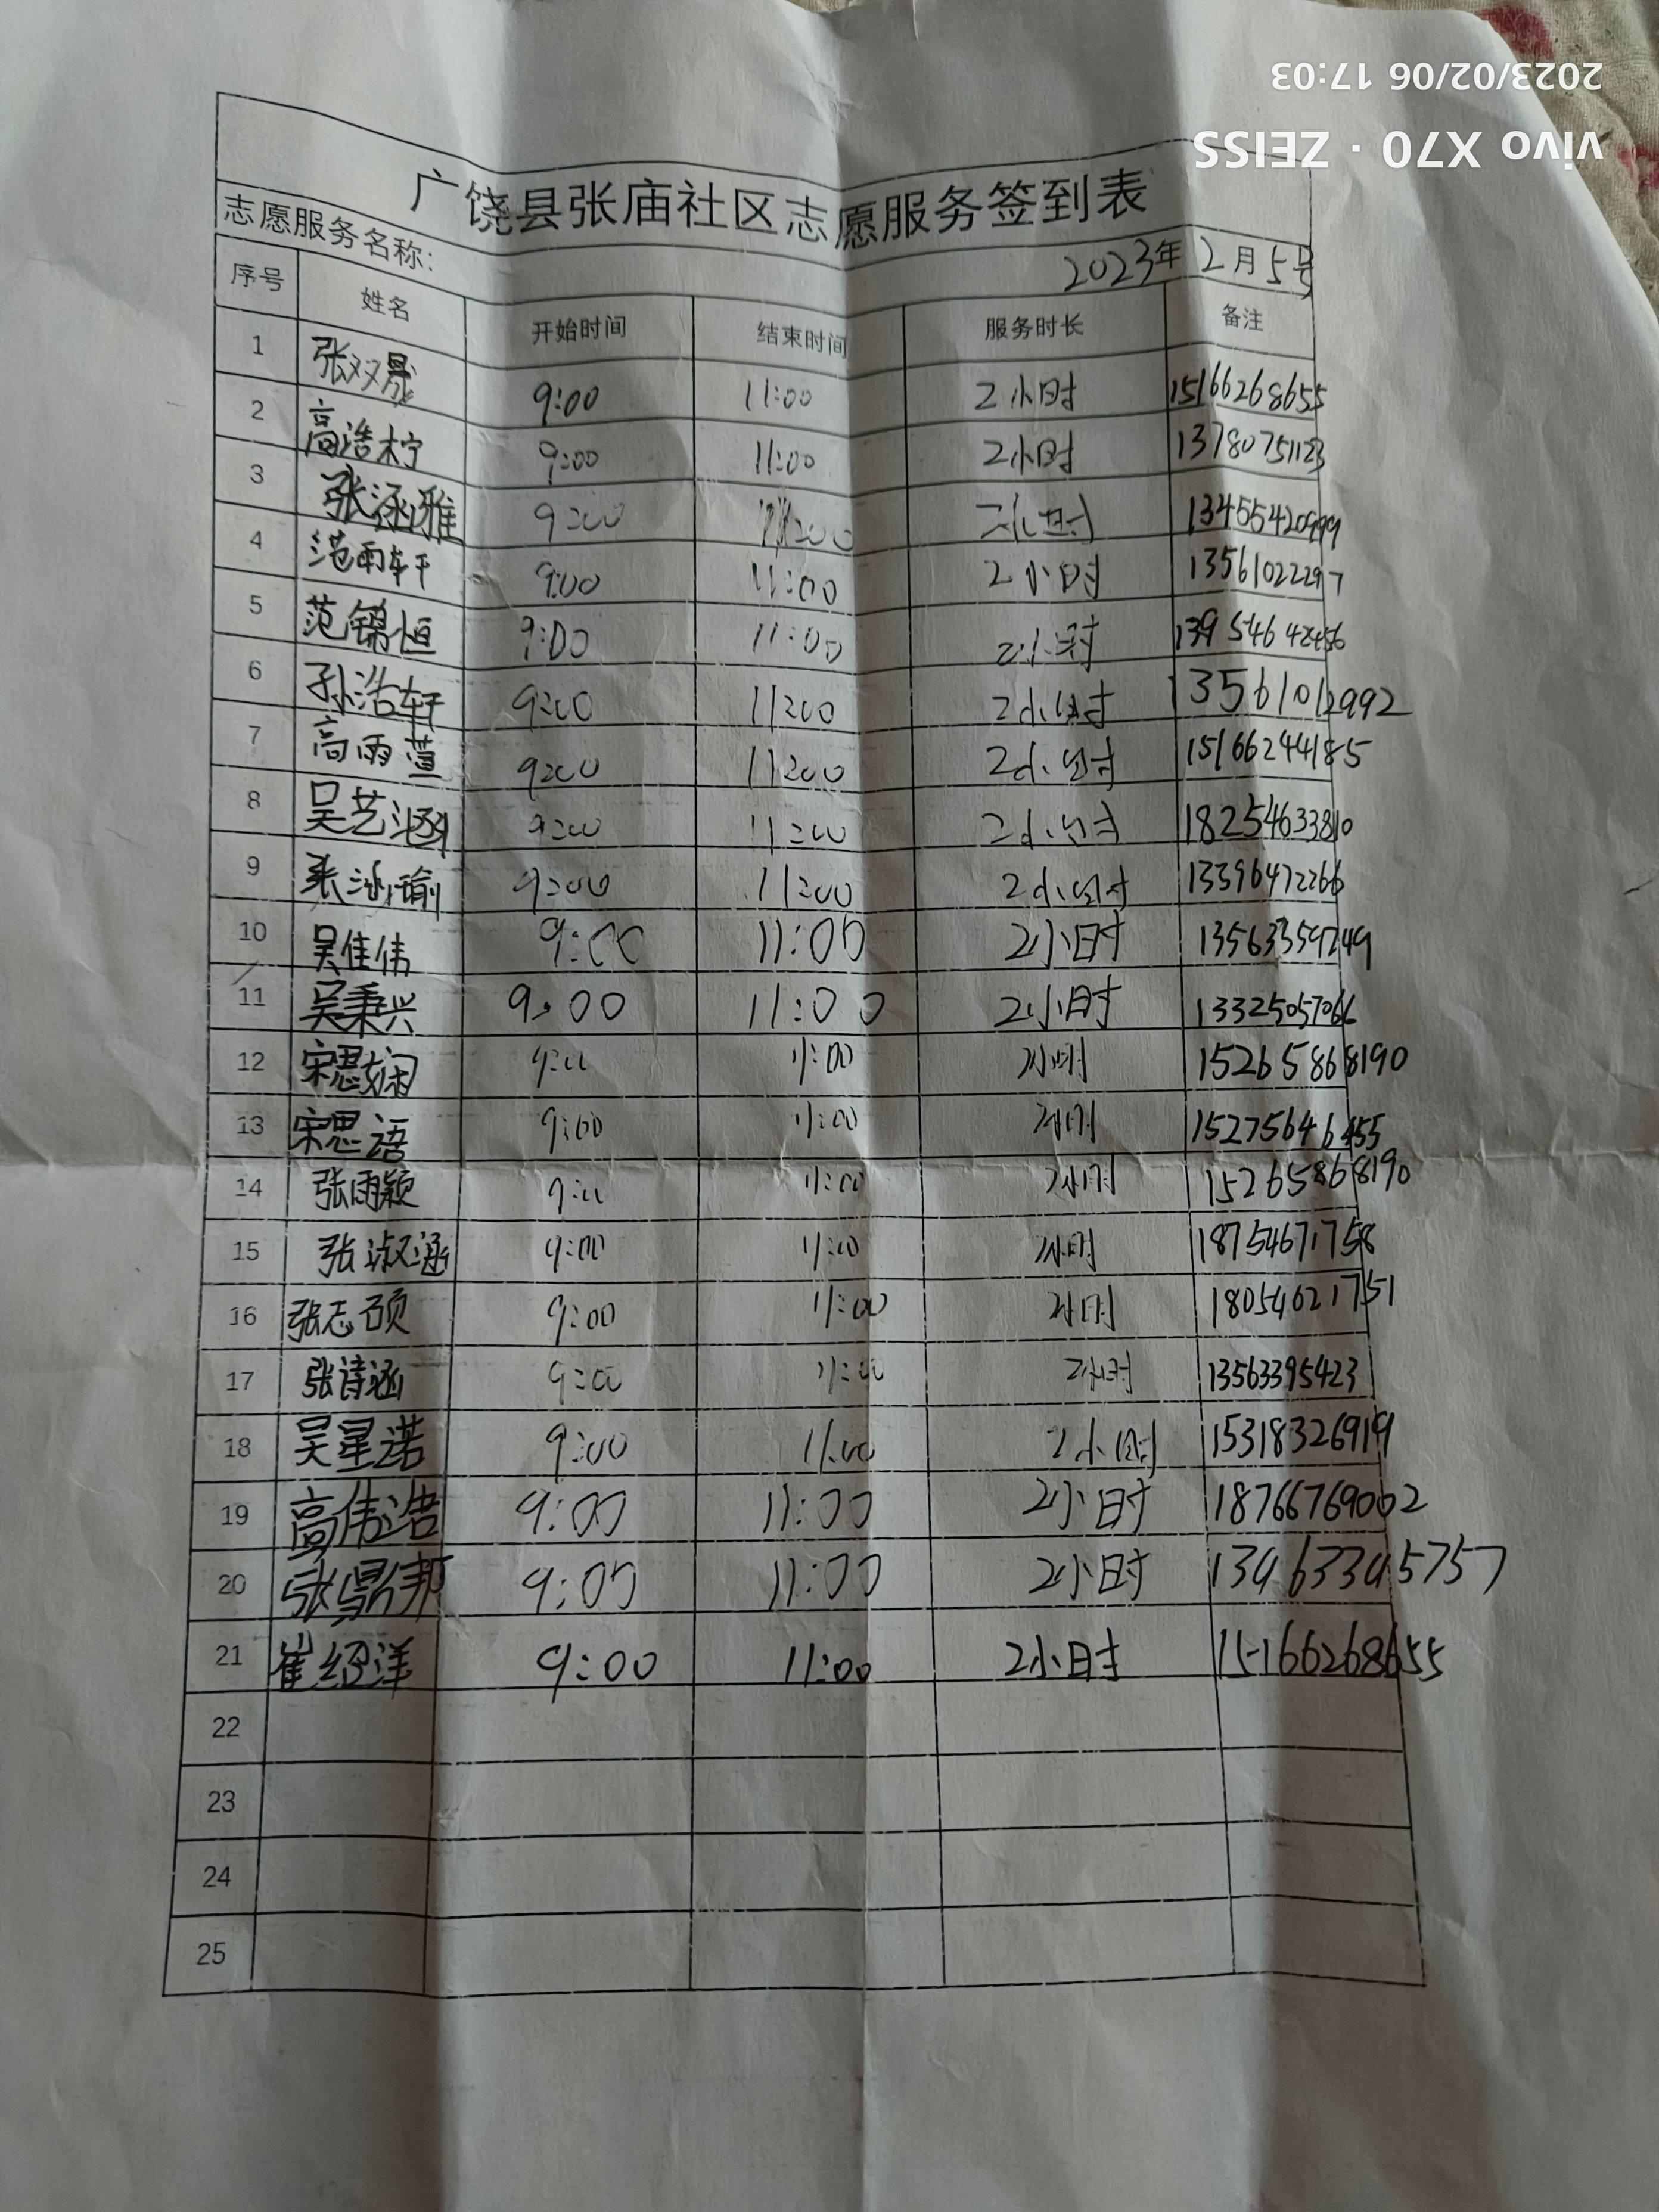 2023/02/06 17:03
vivo X70 · ZEISS
广饶县张庙社区志愿服务签到表
志愿服务名称: 2023年2月5号
序号 姓名 开始时间 结束时间 服务时长 备注
1 张双晟 9:00 11:00 2小时 15166268655
2 高浩柠 9:00 11:00 2小时 13780751123
3 张涵雅 9:00 11:00 2小时
4 范雨轩 9:00 11:00 2小时 13561022297
5 范锦恒 9:00 11:00 2小时 13954642456
6 孙浩轩 9:00 11:00 2小时 13561012992
7 高雨萱 9:00 11:00 2小时 15166244185
8 吴艺涵 9:00 11:00 2小时 18254633810
9 张涵瑜 9:00 11:00 2小时 13396472266
10 吴佳伟 9:00 11:00 2小时 13563359249
11 吴秉兴 9:00 11:00 2小时 13325057066
12 宋思娴 9:00 11:00 2小时 15265868190
13 宋思语 9:00 11:00 2小时 15275646455
14 张雨颖 9:00 11:00 2小时 15265868190
15 张淑涵 9:00 11:00 2小时 18754671758
16 张志硕 9:00 11:00 2小时 18054621751
17 张诗涵 9:00 11:00 2小时 13563395423
18 吴星诺 9:00 11:00 2小时 15318326919
19 高伟浩 9:00 11:00 2小时 18766769002
20 张鼎邦 9:00 11:00 2小时 13963395757
21 崔绍洋 9:00 11:00 2小时 15166268655
22
23
24
25